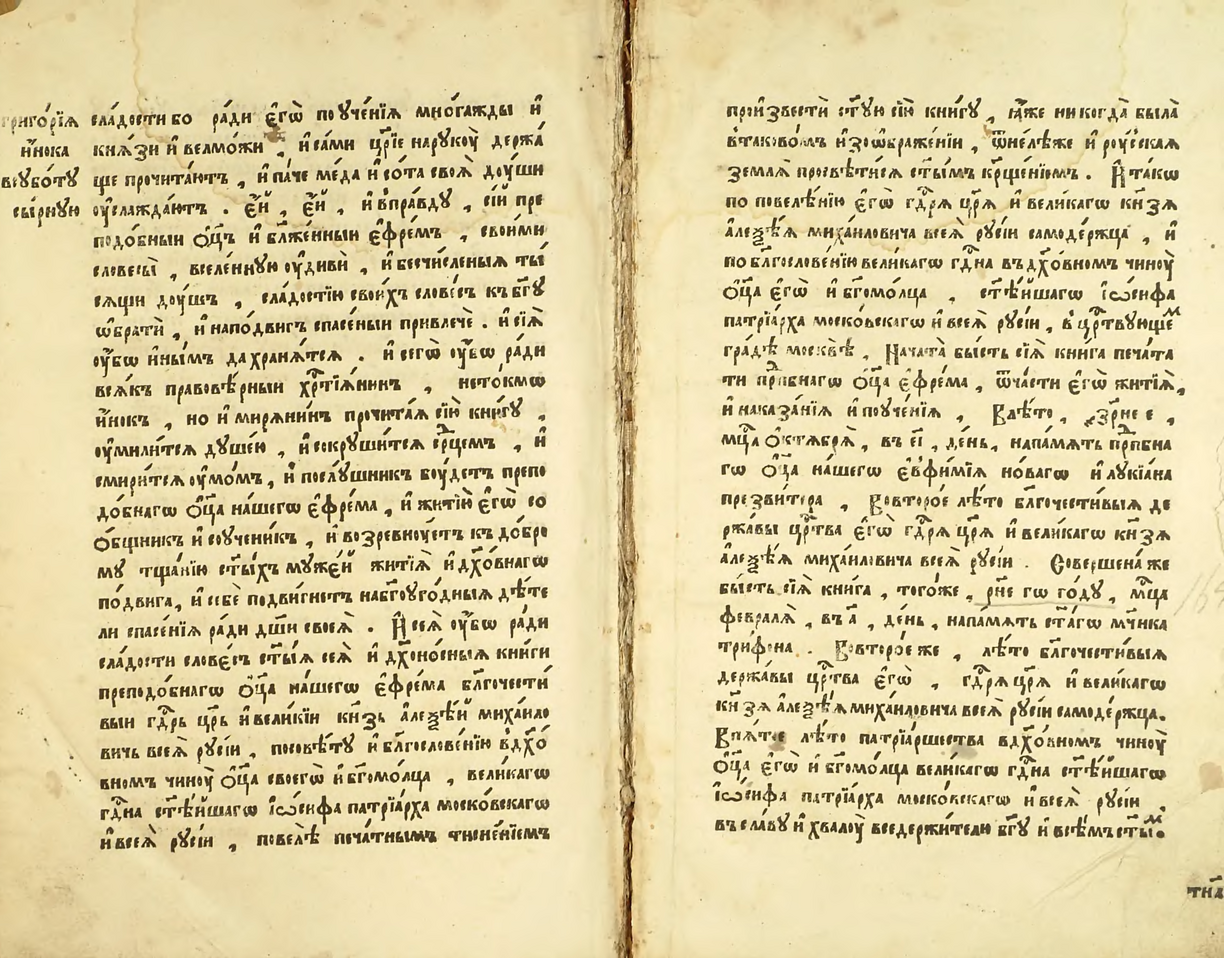 григорїѧ
и҆́нока
всꙋботꙋ
сы́рнꙋю
сла́дости бо ра́ди є҆гѡ̀ поꙋче́нїѧ мно́гажды и҆
кнѧ́зи и҆ велмо́жи , и҆ са́ми цр҃їе нарꙋкоу̀ держа́
ще прочита́ютъ , и҆ па́че ме́да и҆ со́та своѧ̀ доу́ши
оу҆слажда́ютъ . є҆́й , є҆́й , и҆ впра́вдꙋ , се́й пре
подо́бныи ѻ҆ц҃ъ и҆ бл҃же́нныи є҆фре́мъ , свои́ми
словесы̀ , вселе́ннꙋю оу҆дивѝ , и҆ бесчи́сленыѧ ты́
сѧщи доу́шъ , сла́достїю свои́хъ слове́съ къ бг҃ꙋ
ѡ҆братѝ , и҆ наподвигъ спасе́ныи привлечѐ . и҆ сїѧ̀
оу҆́бѡ и҆ны́мъ да хранѧ́тсѧ . и҆ сегѡ̀ оу҆́бѡ ра́ди
всѧ́къ правовѣ́рныи хрⷭ҇тїѧ́нинъ , нето́кмѡ
и҆́нокъ , но и҆ мирѧ́нинъ прочита́ѧ сїю̀ кни́гꙋ ,
оу҆мили́тсѧ дꙋше́ю , и҆ сокрꙋши́тсѧ срⷣцемъ , и҆
смири́тсѧ оу҆мо́мъ , и҆ послꙋ́шникъ боу́детъ препо
до́бнагѡ ѻ҆ц҃а на́шегѡ є҆фре́ма , и҆ житїю̀ є҆гѡ̀ со
ѻ҆́бщникъ и҆ соуче́никъ , и҆ возревноу́етъ къ до́бро
мꙋ тща́нїю ст҃ы́хъ мꙋже́й житїѧ̀ и҆ дх҃о́внагѡ
по́двига , и҆ себѐ подви́гнетъ на бг҃оуго́дныѧ дѣ́те
ли спасе́нїѧ ра́ди дш҃и своеѧ̀ . И҆ сеѧ̀ оу҆́бѡ ра́ди
сла́дости слове́съ ст҃ы́ѧ сеѧ̀ и҆ дх҃оно́сныѧ кни́ги
преподо́бнагѡ ѻ҆ц҃а на́шегѡ є҆фре́ма бл҃гочести́
выи гдⷭ҇рь цр҃ь и҆ вели́кїи кн҃зь а҆леѯѣ́й миха́ило
вичь всеѧ̀ рꙋсі́и , посовѣ́тꙋ и҆ бл҃гослове́нїю в дх҃о́
вномъ чиноу̀ ѻ҆ц҃а своегѡ̀ и҆ бг҃омо́лца , вели́кагѡ
гдⷭ҇на ст҃ѣ́йшагѡ і҆ѡ́сифа патрїа́рха моско́вскагѡ
и҆ всеѧ̀ рꙋсі́и , повелѣ̀ печа́тнымъ тисне́нїемъ
произвестѝ ст҃ꙋ́ю сїю̀ кни́гꙋ , ꙗ҆́же никогда̀ была̀
в таково́мъ и҆зѡбраже́нїи , ѿне́лѣже и҆ роу́сская
землѧ̀ просвѣти́сѧ ст҃ы́мъ крⷳ҇ще́нїемъ . И҆ та́кѡ
по повелѣ́нїю є҆гѡ̀ гдⷭ҇рѧ цр҃ѧ и҆ вели́кагѡ кн҃зѧ
а҆леѯѣ́ѧ миха́иловича всеѧ̀ рꙋсі́и самоде́ржца , и҆
по бл҃гослове́нїю вели́кагѡ гдⷭ҇на въ дх҃о́вномъ чиноу̀
ѻ҆ц҃а є҆гѡ̀ и҆ бг҃омо́лца , ст҃ѣ́йшагѡ і҆ѡ́сифа
патрїа́рха моско́вскагѡ и҆ всеѧ̀ рꙋсі́и , в црⷭ҇твꙋющеⷨ
гра́дѣ москвѣ̀ , Нача́та бы́сть сїѧ̀ кни́га печа́та
ти прпⷣбнагѡ ѻ҆ц҃а є҆фре́ма , ѿча́сти є҆гѡ̀ житїѧ̀ ,
и҆ наказа́нїѧ и҆ поуче́нїѧ , В лѣ́то , ҂зрне е ,
мцⷭ҇а ѻ҆ктѧ́брѧ , въ еі , де́нь , напа́мѧть прпⷣбна
гѡ ѻ҆ц҃а на́шегѡ є҆вфи́мїѧ но́вагѡ и҆ лꙋкїа́на
презви́тера , Во второ́е лѣ́то бл҃гочести́выѧ де
ржа́вы црⷭ҇тва є҆гѡ̀ гдⷭ҇рѧ цр҃ѧ и҆ вели́кагѡ кн҃зѧ
а҆леѯѣ́ѧ миха́иловича всеѧ̀ рꙋсі́и . Соверше́на же
бы́сть сїѧ̀ кни́га , того́же , рне гѡ го́дꙋ , мцⷭ҇а
февралѧ̀ , въ а҃ , де́нь , напа́мѧть ст҃а́гѡ мч҃ника
три́фона . Во второ́е же , лѣ́то бл҃гочести́выѧ
держа́вы црⷭ҇тва є҆гѡ̀ , гдⷭ҇рѧ цр҃ѧ и҆ вели́кагѡ
кн҃зѧ а҆леѯѣ́ѧ миха́иловича всеѧ̀ рꙋсі́и самоде́ржца .
В пѧ́тое лѣ́то патрїа́ршества в дх҃о́вномъ чиноу̀
ѻ҆ц҃а є҆гѡ̀ и҆ бг҃омо́лца вели́кагѡ гдⷭ҇на ст҃ѣ́йшагѡ
і҆ѡ́сифа патрїа́рха моско́вскагѡ и҆ всеѧ̀ рꙋсі́и ,
въ сла́вꙋ и҆ хвалоу̀ вседержи́телю бг҃ꙋ и҆ всѣ́мъ ст҃ыⷨ .